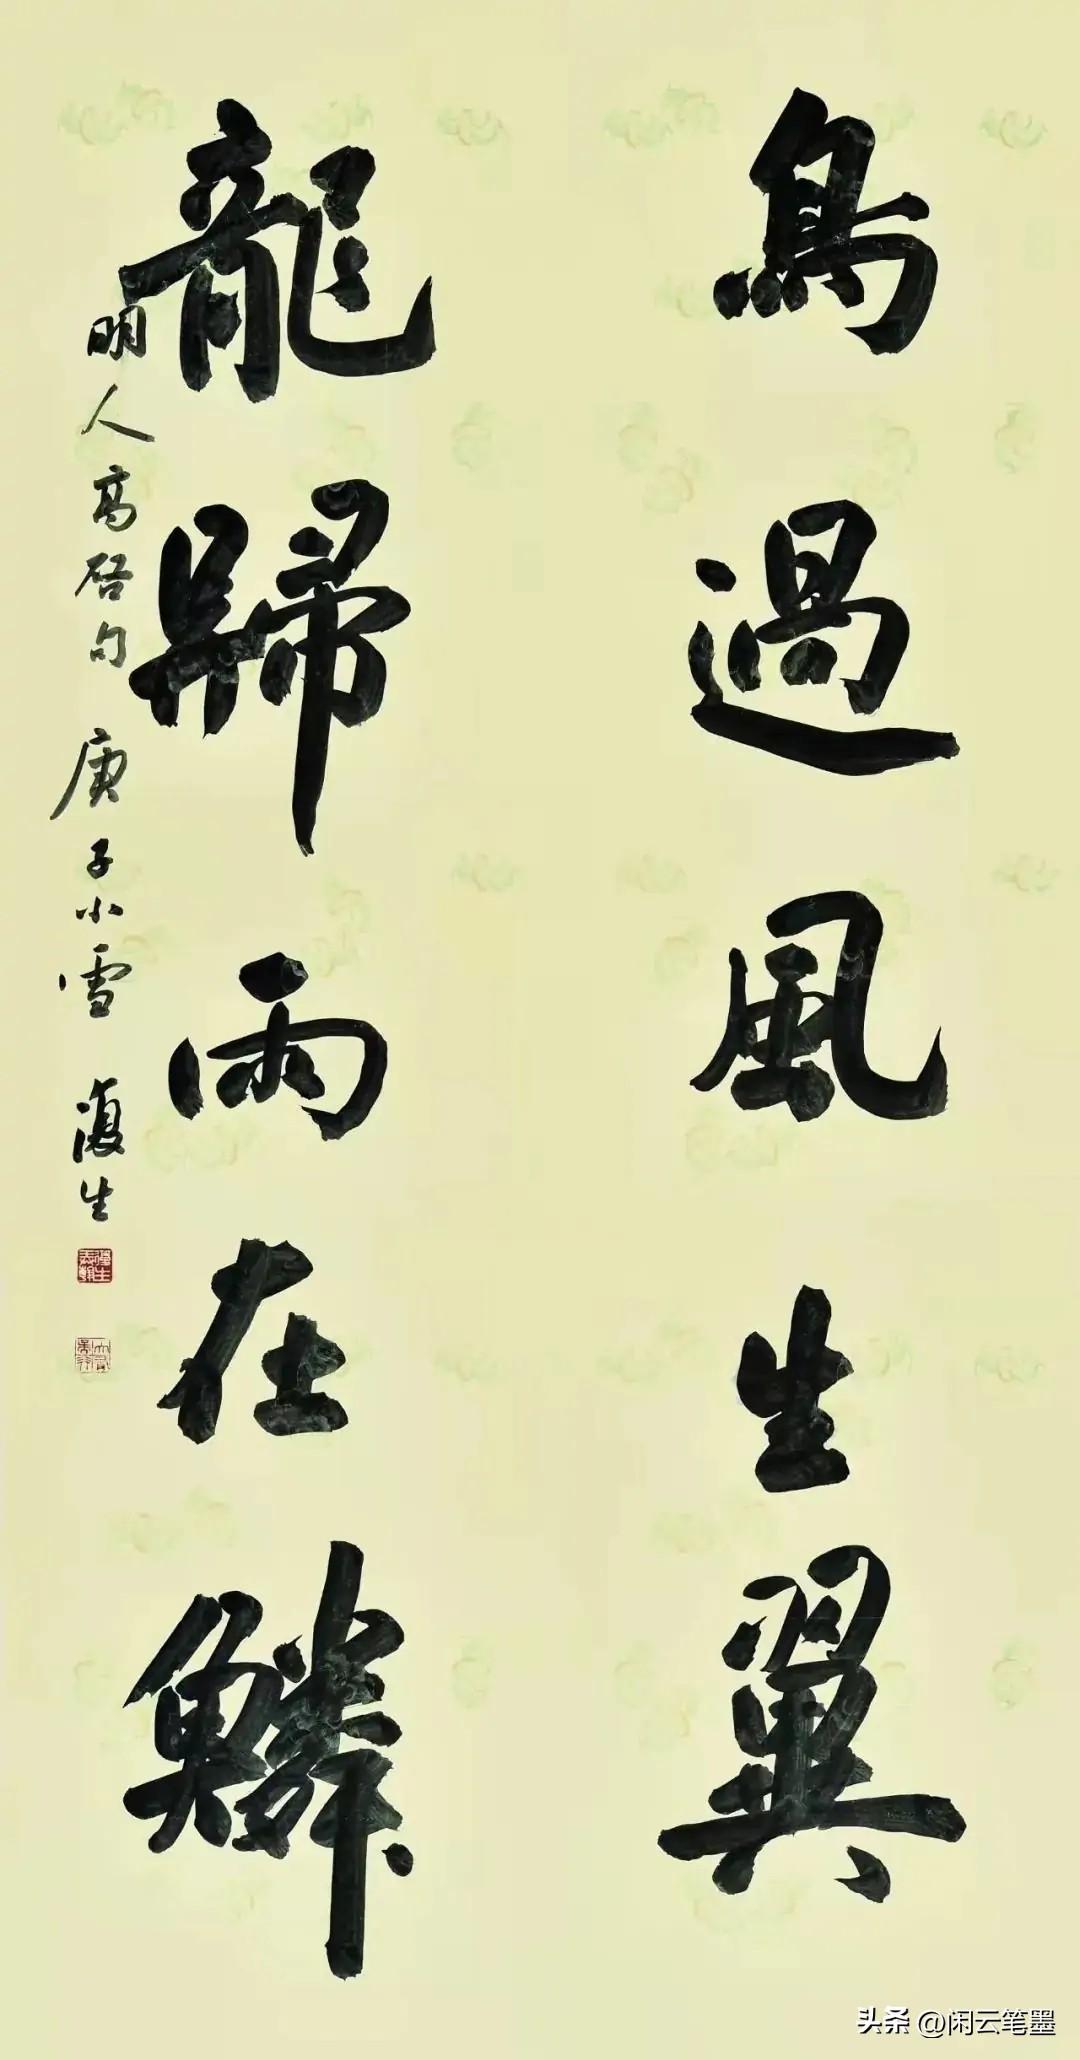 鳥過風生翼
龍歸雨在鱗
明人高启句 庚子小雪 復生
头条 @闲云笔墨